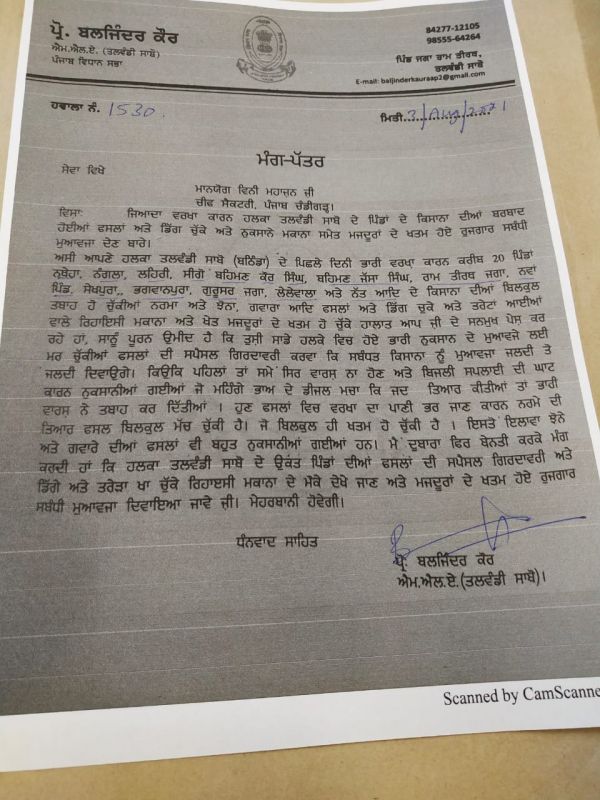 ਪ੍ਰੋ. ਬਲਜਿੰਦਰ ਕੌਰ
ਐਮ.ਐਲ.ਏ. (ਤਲਵੰਡੀ ਸਾਬੋ)
ਪੰਜਾਬ ਵਿਧਾਨ ਸਭਾ
84277-12105
98555-64264
ਪਿੰਡ ਜਗਾ ਰਾਮ ਤੀਰਥ,
ਤਲਵੰਡੀ ਸਾਬੋ
E-mail: baljinderkauraap2@gmail.com
ਹਵਾਲਾ ਨੰ. 1530.
ਮਿਤੀ. 3/Aug/2021
ਮੰਗ-ਪੱਤਰ
ਸੇਵਾ ਵਿਖੇ
ਮਾਨਯੋਗ ਵਿਨੀ ਮਹਾਜਨ ਜੀ
ਚੀਫ ਸੈਕਟਰੀ, ਪੰਜਾਬ ਚੰਡੀਗੜ੍ਹ।
ਵਿਸ਼ਾ: ਜਿਆਦਾ ਵਰਖਾ ਕਾਰਨ ਹਲਕਾ ਤਲਵੰਡੀ ਸਾਬੋ ਦੇ ਪਿੰਡਾਂ ਦੇ ਕਿਸਾਨਾ ਦੀਆਂ ਬਰਬਾਦ
ਹੋਈਆਂ ਫਸਲਾਂ ਅਤੇ ਡਿੱਗ ਚੁੱਕੇ ਅਤੇ ਨੁਕਸਾਨੇ ਮਕਾਨਾ ਸਮੇਤ ਮਜਦੂਰਾਂ ਦੇ ਖਤਮ ਹੋਏ ਰੁਜਗਾਰ ਸਬੰਧੀ
ਮੁਆਵਜਾ ਦੇਣ ਬਾਰੇ।
ਅਸੀ ਆਪਣੇ ਹਲਕਾ ਤਲਵੰਡੀ ਸਾਬੋ (ਬਠਿੰਡਾ) ਦੇ ਪਿਛਲੇ ਦਿਨੀ ਭਾਰੀ ਵਰਖਾ ਕਾਰਨ ਕਰੀਬ 20 ਪਿੰਡਾਂ
ਨਥੇਹਾ, ਨੰਗਲਾ, ਲਹਿਰੀ, ਸੀਗੋ ਬਹਿਮਣ ਕੌਰ ਸਿੰਘ, ਬਹਿਮਣ ਜੱਸਾ ਸਿੰਘ, ਰਾਮ ਤੀਰਥ ਜਗਾ, ਨਵਾਂ
ਪਿੰਡ, ਸੇਖਪੁਰਾ, ਭਗਵਾਨਪੁਰਾ, ਗੁਰੂਸਰ ਜਗਾ, ਲੇਲੇਵਾਲਾ ਅਤੇ ਨੱਤ ਆਦਿ ਦੇ ਕਿਸਾਨਾ ਦੀਆਂ ਬਿਲਕੁਲ
ਤਬਾਹ ਹੋ ਚੁੱਕੀਆਂ ਨਰਮਾ ਅਤੇ ਝੋਨਾ, ਗਵਾਰਾ ਆਦਿ ਫਸਲਾਂ ਅਤੇ ਡਿੱਗ ਚੁਕੇ ਅਤੇ ਤਰੇੜਾ ਆਈਆਂ
ਵਾਲੇ ਰਿਹਾਇਸੀ ਮਕਾਨਾ ਅਤੇ ਖੇਤ ਮਜਦੂਰਾਂ ਦੇ ਖਤਮ ਹੋ ਚੁੱਕੇ ਹਾਲਾਤ ਆਪ ਜੀ ਦੇ ਸਨਮੁਖ ਪੇਸ਼ ਕਰ
ਰਹੇ ਹਾਂ, ਸਾਨੂੰ ਪੂਰਨ ਉਮੀਦ ਹੈ ਕਿ ਤੁਸੀ ਸਾਡੇ ਹਲਕੇ ਵਿਚ ਹੋਏ ਭਾਰੀ ਨੁਕਸਾਨ ਦੇ ਮੁਆਵਜੇ ਲਈ
ਮਰ ਚੁੱਕੀਆਂ ਫਸਲਾਂ ਦੀ ਸਪੈਸਲ ਗਿਰਦਾਵਰੀ ਕਰਵਾ ਕਿ ਸਬੰਧਤ ਕਿਸਾਨਾ ਨੂੰ ਮੁਆਵਜਾ ਜਲਦੀ ਤੋ
ਜਲਦੀ ਦਿਵਾਉਗੇ। ਕਿਉਕਿ ਪਹਿਲਾਂ ਤਾਂ ਸਮੇਂ ਸਿਰ ਵਾਰਸ਼ ਨਾ ਹੋਣ ਅਤੇ ਬਿਜਲੀ ਸਪਲਾਈ ਦੀ ਘਾਟ
ਕਾਰਨ ਨੁਕਸਾਨੀਆਂ ਗਈਆਂ ਜੋ ਮਹਿੰਗੇ ਭਾਅ ਦੇ ਡੀਜਲ ਮਚਾ ਕਿ ਜਦ ਤਿਆਰ ਕੀਤੀਆਂ ਤਾਂ ਭਾਰੀ
ਵਾਰਸ਼ ਨੇ ਤਬਾਹ ਕਰ ਦਿੱਤੀਆਂ । ਹੁਣ ਫਸਲਾਂ ਵਿਚ ਵਰਖਾ ਦਾ ਪਾਣੀ ਭਰ ਜਾਣ ਕਾਰਨ ਨਰਮੇ ਦੀ
ਤਿਆਰ ਫਸਲ ਬਿਲਕੁਲ ਮੱਚ ਚੁੱਕੀ ਹੈ। ਜੋ ਬਿਲਕੁਲ ਹੀ ਖਤਮ ਹੋ ਚੁੱਕੀ ਹੈ । ਇਸਤੋ ਇਲਾਵਾ ਝੋਨੇ
ਅਤੇ ਗਵਾਰੇ ਦੀਆਂ ਫਸਲਾਂ ਵੀ ਬਹੁਤ ਨੁਕਸਾਨੀਆਂ ਗਈਆਂ ਹਨ। ਮੈਂ ਦੁਬਾਰਾ ਫਿਰ ਬੇਨਤੀ ਕਰਕੇ ਮੰਗ
ਕਰਦੀ ਹਾਂ ਕਿ ਹਲਕਾ ਤਲਵੰਡੀ ਸਾਬੋ ਦੇ ਉਕਤ ਪਿੰਡਾਂ ਦੀਆਂ ਫਸਲਾਂ ਦੀ ਸਪੈਸਲ ਗਿਰਦਾਵਰੀ ਅਤੇ
ਡਿੱਗੇ ਅਤੇ ਤਰੇੜਾ ਖਾ ਚੁੱਕੇ ਰਿਹਾਇਸੀ ਮਕਾਨਾ ਦੇ ਮੌਕੇ ਦੇਖੇ ਜਾਣ ਅਤੇ ਮਜਦੂਰਾਂ ਦੇ ਖਤਮ ਹੋਏ ਰੁਜਗਾਰ
ਸਬੰਧੀ ਮੁਆਵਜਾ ਦਿਵਾਇਆ ਜਾਵੇ ਜੀ। ਮੇਹਰਬਾਨੀ ਹੋਵੇਗੀ।
ਧੰਨਵਾਦ ਸਾਹਿਤ
ਪ੍ਰੋ. ਬਲਜਿੰਦਰ ਕੌਰ
ਐਮ.ਐਲ.ਏ.(ਤਲਵੰਡੀ ਸਾਬੋ)।
Scanned by CamScanne